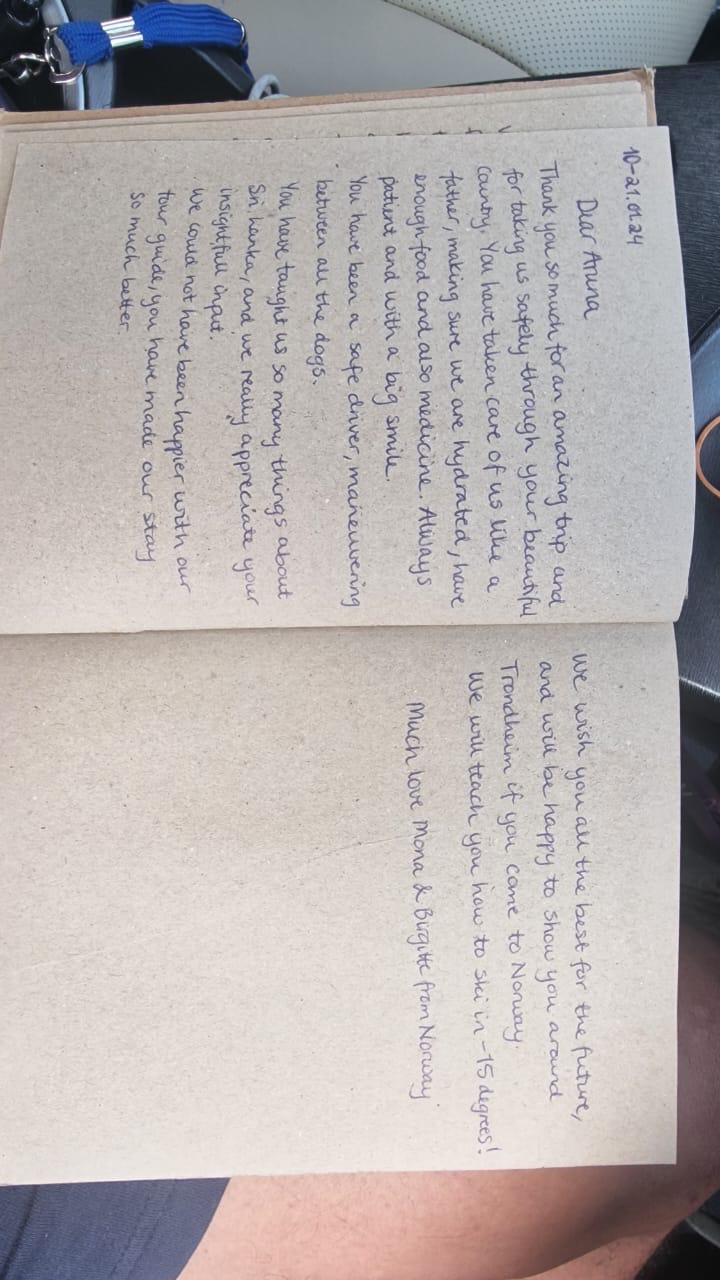 10-21.01.24
Dear Aruna
Thank you so much for an amazing trip and
for taking us safely through your beautiful
country. You have taken care of us like a
father, making sure we are hydrated, have
enough food and also medicine. Always
patient and with a big smile.
You have been a safe driver, maneuvering
between all the dogs.
You have taught us so many things about
Sri Lanka, and we really appreciate your
insightfull input.
We could not have been happier with our
tour guide, you have made our stay
so much better.
We wish you all the best for the future,
and will be happy to show you around
Trondheim if you come to Norway.
We will teach you how to ski in -15 degrees!
Much love Mona & Birgitte from Norway